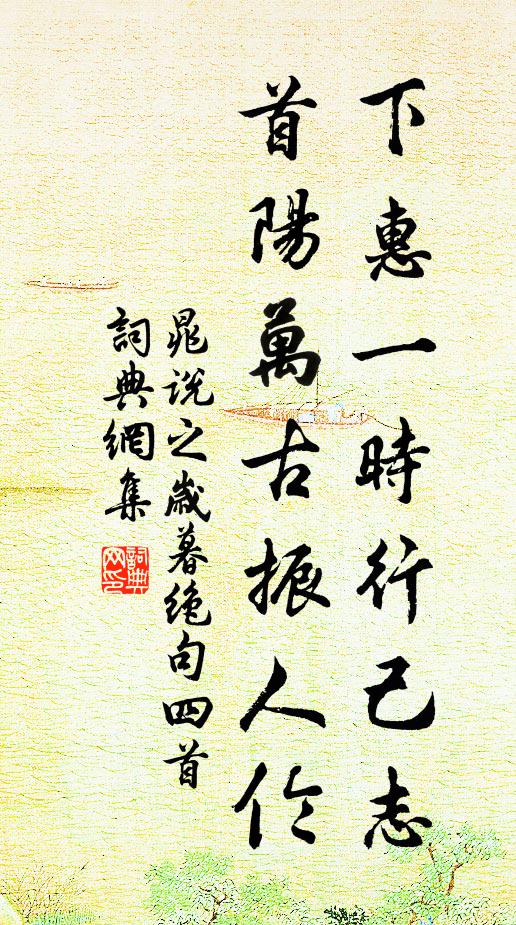 下惠一時行己志
首陽萬古振人伦
晁說之歲暮絶句四首
詞典網集
詞典网印